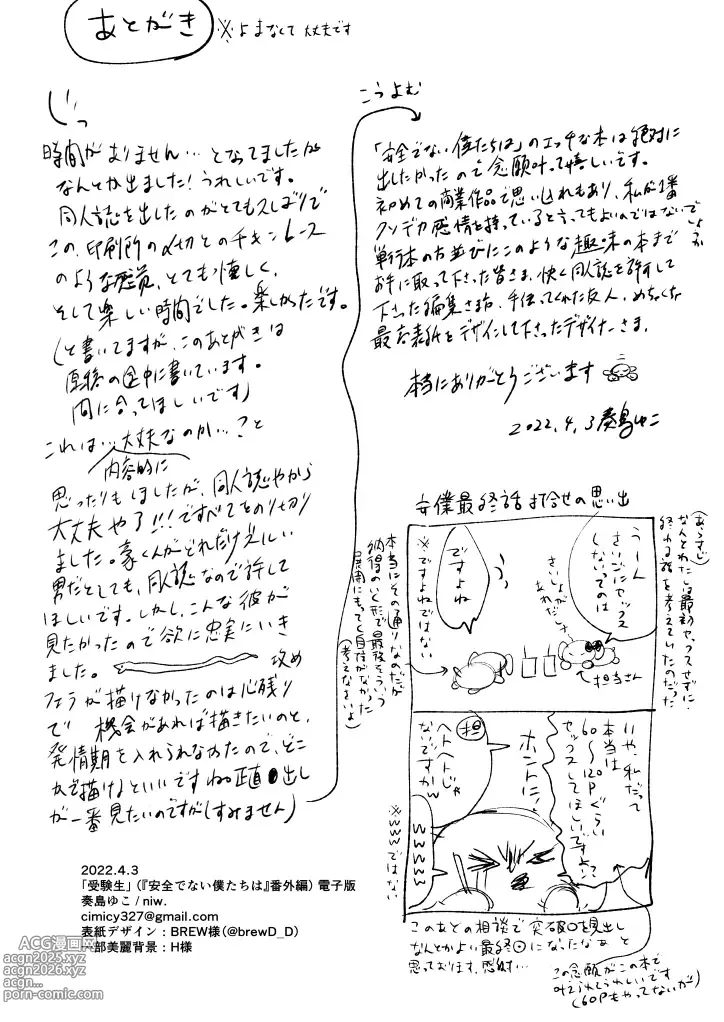 あとがき ※よまなくて大丈夫です
時間がありません…となってましたが
なんとか出ました!うれしいです。
同人誌を出したのがとてもひさしぶりで
この、印刷所の〆切とのチキンレース
のような感覚、とても懐しく、
そして楽しい時間でした。楽しかったです。
(と書いてますが、このあとがきは
原稿の途中に書いています。
間に合ってほしいです)
これは…大丈夫なのか…?と
内容的に
思ったりもしましたが、同人誌やから
大丈夫や了!!!ですべてをのり切り
ました。豪くんがどれだけ
男だとしても、同人誌なので許して
ほしいです。しかし、こんな彼が
見たかったので欲に忠実にいき
ました。 攻め
フェラが描けなかったのは心残り
で 機会があれば描きたいのと、
発情期を入れられなかったので、どこ
かで描けるといいですね。正直 出し
が一番見たいのですが(すみません)
こうよむ
「安全でない僕たちは」のエッチな本は絶対に
出したかったので念願叶って嬉しいです。
初めての商業作品で思い入れもあり、私が1番
クソデカ感情を持っていると言ってもよいのではないで
しょうか
単行本の方並びにこのような趣味の本まで
お手に取って下さった皆さま、快く同人誌を許して
下さった編集さま方、手伝ってくれた友人、めちゃくちゃ
最高な表紙をデザインして下さったデザイナーさま、
本当にありがとうございます
2022.4.3 奏島ゆこ
安僕最終話打合せの思い出
(あらすじ)
なんとわたしは最初ヤッてせずに
終わる話を考えていたのだった
うーん
さいごにセックス
しないってのは
さいしょが
あれだし…
←担当さん
ですよね
※ですよねではない
本当にその通りなのだが
納得のいく形で最後そういう
展開にもってく自信がなかった
(考えなさいよ)
いや、私だって
本当は
60〜120Pぐらい
セックスしてほしいですよ!
ホントに!
担
ヘトヘトじゃ
ないですかw
wwww
※wwwではない
このあとの相談で突破口を見出し
なんとかよい最終回になったなぁと
思っております。感謝…
この念願がこの本で
叶えられてうれしいです
(60Pもやってないが)
2022.4.3
「受験生」(『安全でない僕たちは』番外編) 電子版
奏島ゆこ / niw.
cimicy327@gmail.com
表紙デザイン:BREW様(@brewD_D)
一部美麗背景:H様
ACG漫画网
acgn2025.xyz
acgn2026.xyz
acgn...
porn-comic.com